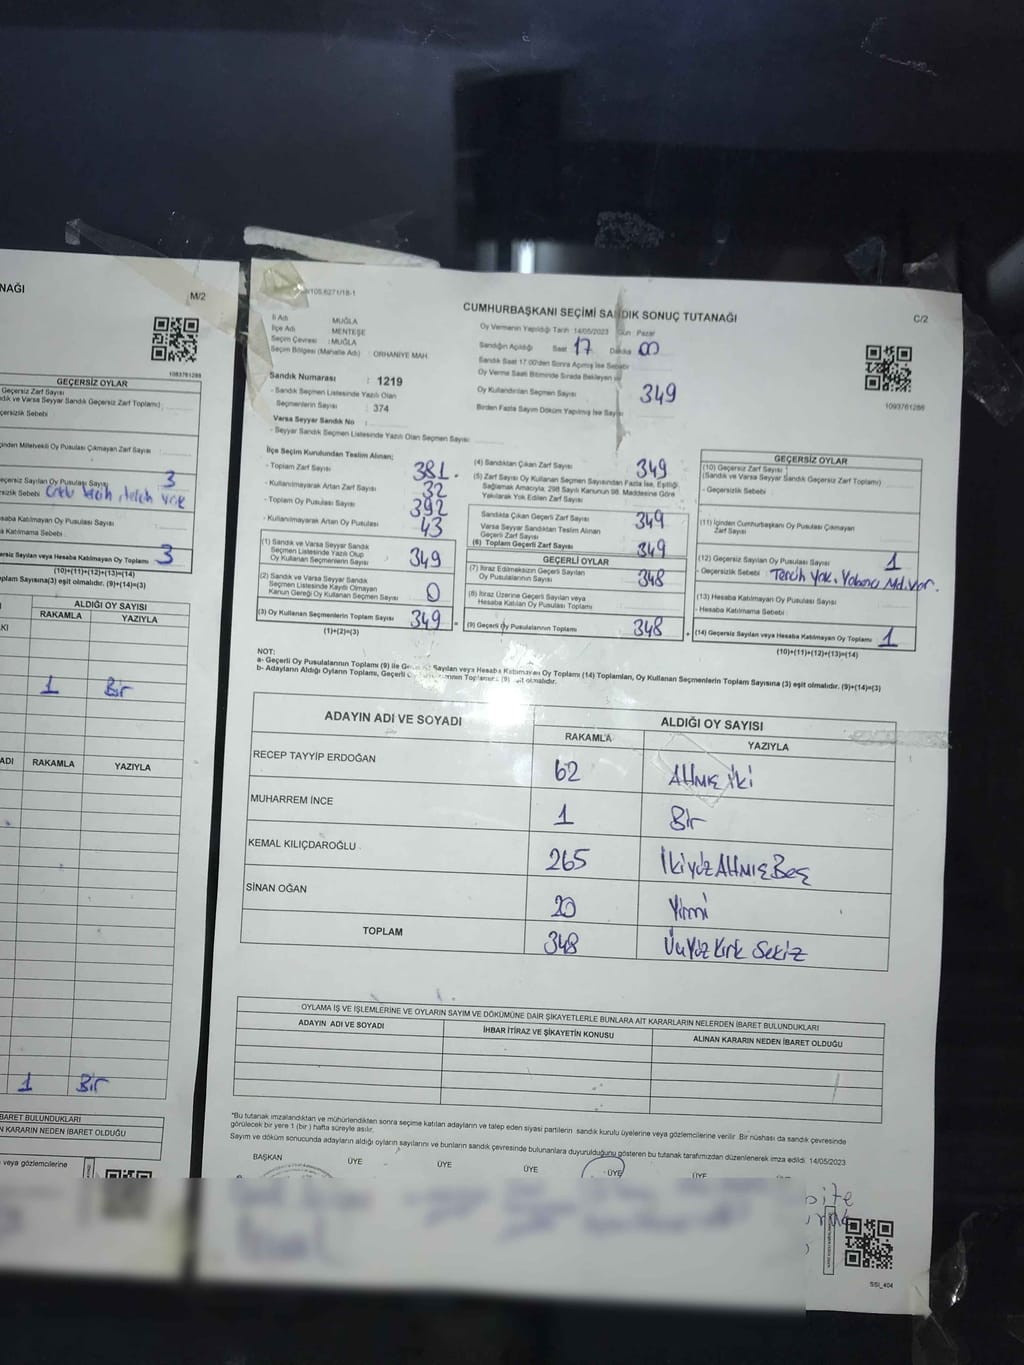 NAĞI
M/2
1093761286
GEÇERSİZ OYLAR
Geçersiz Zarf Sayısı
ndık ve Varsa Seyyar Sandık Geçersiz Zarf Toplamı)
çersizlik Sebebi
çinden Milletvekili Oy Pusulası Çıkmayan Zarf Sayısı
eçersiz Sayılan Oy Pusulası Sayısı 3
rsizlik Sebebi
saba Katılmayan Oy Pusulası Sayısı
a Katılmama Sebebi
ersiz Sayılan veya Hesaba Katılmayan Oy Toplamı 3
(10)+(11)+(12)+(13)=(14)
plam Sayısına(3) eşit olmalıdır. (9)+(14)=(3)
ALDIĞI OY SAYISI
RAKAMLA YAZIYLA
KI
1 Bir
ADI RAKAMLA YAZIYLA
1 Bir
BARET BULUNDUKLARI
N KARARIN NEDEN İBARET OLDUĞU
veya gözlemcilerine
/105.6271/18-1
CUMHURBAŞKANI SEÇİMİ SANDIK SONUÇ TUTANAĞI
C/2
İl Adı : MUĞLA
İlçe Adı : MENTEŞE
Seçim Çevresi : MUĞLA
Seçim Bölgesi (Mahalle Adı) : ORHANİYE MAH.
Sandık Numarası : 1219
- Sandık Seçmen Listesinde Yazılı Olan
Seçmenlerin Sayısı : 374
Varsa Seyyar Sandık No :
- Seyyar Sandık Seçmen Listesinde Yazılı Olan Seçmen Sayısı
Oy Vermenin Yapıldığı Tarih 14/05/2023 Gün : Pazar
Sandığın Açıldığı Saat 17 Dakika 00
Sandık Saat 17:00'den Sonra Açılmış İse Sebebi
Oy Verme Saati Bitiminde Sırada Bekleyen
Oy Kullandırılan Seçmen Sayısı 349
Birden Fazla Sayım Döküm Yapılmış İse Sayısı
1093761286
İlçe Seçim Kurulundan Teslim Alınan;
- Toplam Zarf Sayısı 381
- Kullanılmayarak Artan Zarf Sayısı 32
- Toplam Oy Pusulası Sayısı 392
- Kullanılmayarak Artan Oy Pusulası 43
(1) Sandık ve Varsa Seyyar Sandık
Seçmen Listesinde Yazılı Olup
Oy Kullanan Seçmenlerin Sayısı 349
(2) Sandık ve Varsa Seyyar Sandık
Seçmen Listesinde Kayıtlı Olmayan
Kanun Gereği Oy Kullanan Seçmen Sayısı 0
(3) Oy Kullanan Seçmenlerin Toplam Sayısı 349
(1)+(2)=(3)
(4) Sandıktan Çıkan Zarf Sayısı 349
(5) Zarf Sayısı Oy Kullanan Seçmen Sayısından Fazla İse, Eşitliği
Sağlamak Amacıyla, 298 Sayılı Kanunun 98. Maddesine Göre
Yakılarak Yok Edilen Zarf Sayısı
Sandıkta Çıkan Geçerli Zarf Sayısı 349
Varsa Seyyar Sandıktan Teslim Alınan
Geçerli Zarf Sayısı
(6) Toplam Geçerli Zarf Sayısı 349
GEÇERLİ OYLAR
(7) İtiraz Edilmeksizin Geçerli Sayılan
Oy Pusulalarının Sayısı 348
(8) İtiraz Üzerine Geçerli Sayılan veya
Hesaba Katılan Oy Pusulası Toplamı
(9) Geçerli Oy Pusulalarının Toplamı 348
GEÇERSİZ OYLAR
(10) Geçersiz Zarf Sayısı
(Sandık ve Varsa Seyyar Sandık Geçersiz Zarf Toplamı)
- Geçersizlik Sebebi
(11) İçinden Cumhurbaşkanı Oy Pusulası Çıkmayan
Zarf Sayısı
(12) Geçersiz Sayılan Oy Pusulası Sayısı 1
- Geçersizlik Sebebi Tercih Yok. Yabancı Md. var.
(13) Hesaba Katılmayan Oy Pusulası Sayısı
- Hesaba Katılmama Sebebi
(14) Geçersiz Sayılan veya Hesaba Katılmayan Oy Toplamı 1
(10)+(11)+(12)+(13)=(14)
NOT:
a- Geçerli Oy Pusulalarının Toplamı (9) ile Geçersiz Sayılan veya Hesaba Katılmayan Oy Toplamı (14) Toplamları, Oy Kullanan Seçmenlerin Toplam Sayısına (3) eşit olmalıdır. (9)+(14)=(3)
b- Adayların Aldığı Oyların Toplamı, Geçerli Oy Pusulalarının Toplamına (9) eşit olmalıdır.
ADAYIN ADI VE SOYADI ALDIĞI OY SAYISI
RAKAMLA YAZIYLA
RECEP TAYYİP ERDOĞAN 62 Altmış iki
MUHARREM İNCE 1 Bir
KEMAL KILIÇDAROĞLU 265 İkiyüz Altmış Beş
SİNAN OĞAN 20 Yirmi
TOPLAM 348 Üçyüz Kırk Sekiz
OYLAMA İŞ VE İŞLEMLERİNE VE OYLARIN SAYIM VE DÖKÜMÜNE DAİR ŞİKAYETLERLE BUNLARA AİT KARARLARIN NELERDEN İBARET BULUNDUKLARI
ADAYIN ADI VE SOYADI İHBAR İTİRAZ VE ŞİKAYETİN KONUSU ALINAN KARARIN NEDEN İBARET OLDUĞU
*Bu tutanak imzalandıktan ve mühürlendikten sonra seçime katılan adayların ve talep eden siyasi partilerin sandık kurulu üyelerine veya gözlemcilerine verilir. Bir nüshası da sandık çevresinde
görülecek bir yere 1 (bir) hafta süreyle asılır.
Sayım ve döküm sonucunda adayların aldığı oyların sayılarını ve bunların sandık çevresinde bulunanlara duyurulduğunu gösteren bu tutanak tarafımızdan düzenlenerek imza edildi. 14/05/2023
BAŞKAN ÜYE ÜYE ÜYE ÜYE ÜYE
SSI_404